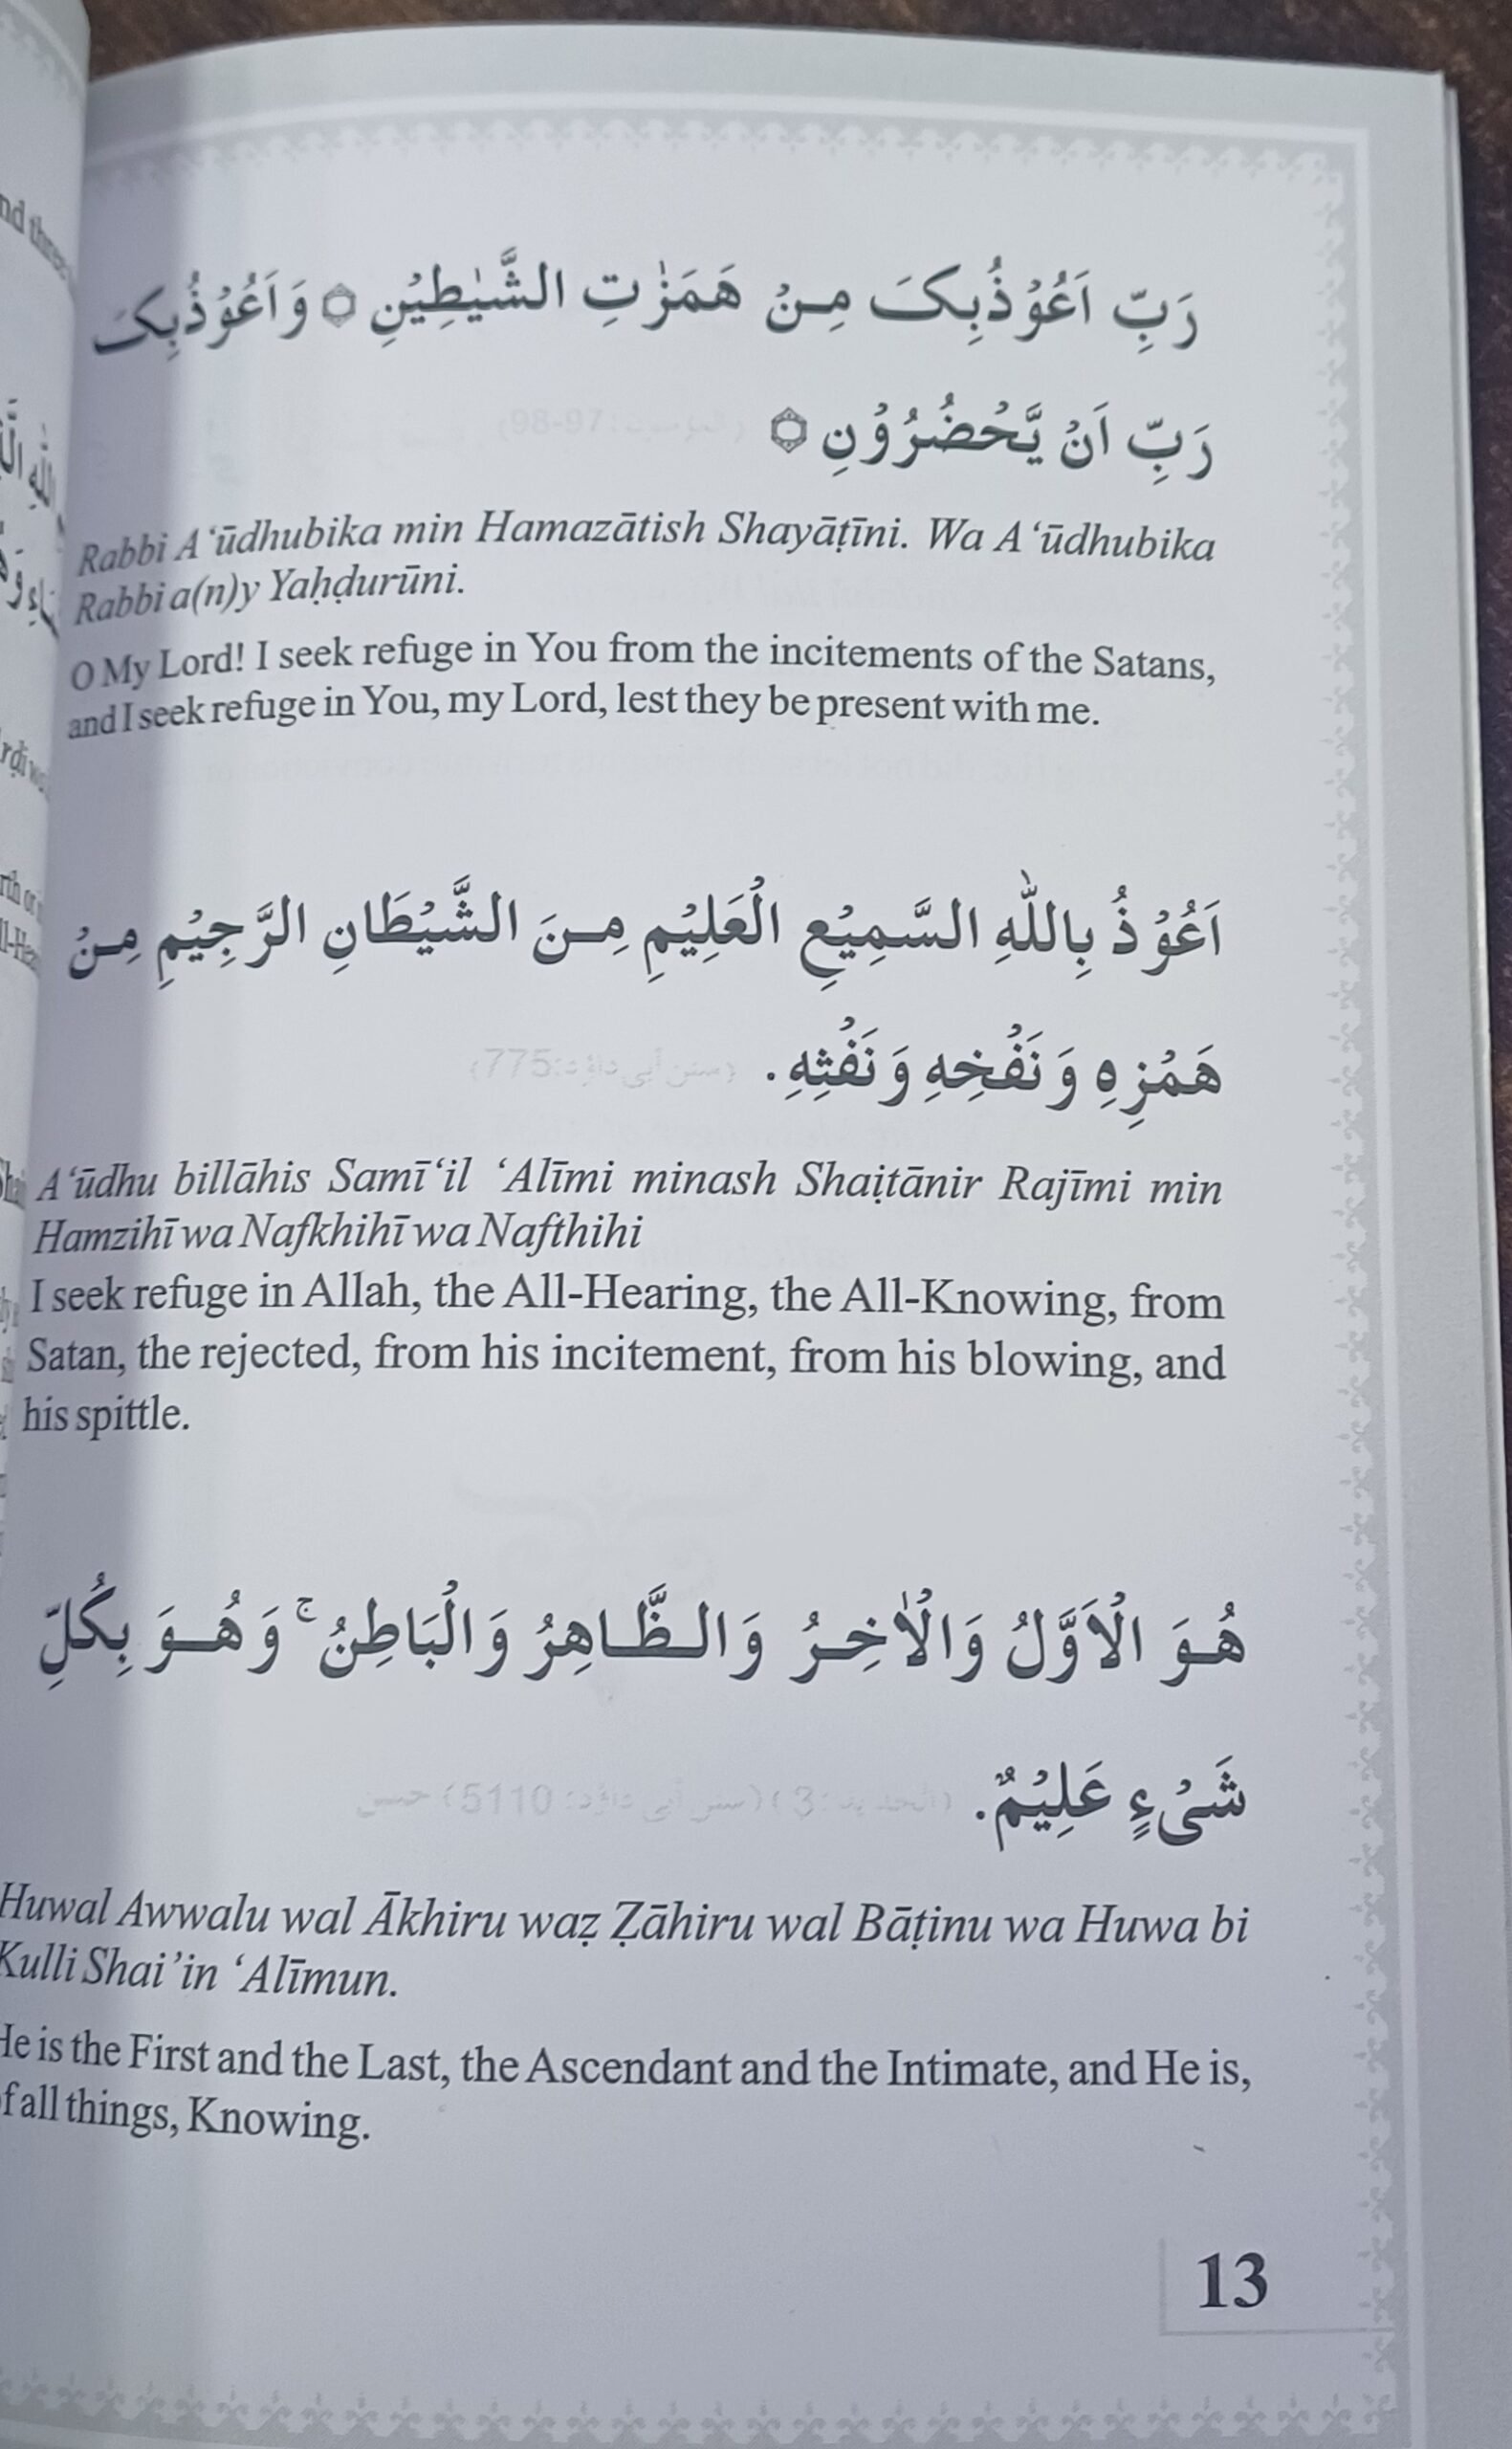 رَبِّ اَعُوْذُبِکَ مِنْ هَمَزٰتِ الشَّيٰطِيْنِ ۞ وَاَعُوْذُبِکَ
رَبِّ اَنْ يَّحْضُرُوْنِ ۞ (المؤمنون:97-98)
Rabbi A‘ūdhubika min Hamazātish Shayāṭīni. Wa A‘ūdhubika
Rabbi a(n)y Yaḥḍurūni.
O My Lord! I seek refuge in You from the incitements of the Satans,
and I seek refuge in You, my Lord, lest they be present with me.
اَعُوْذُ بِاللّٰهِ السَّمِيْعِ الْعَلِيْمِ مِنَ الشَّيْطَانِ الرَّجِيْمِ مِنْ
هَمْزِهِ وَنَفْخِهِ وَنَفْثِهِ. (سنن أبى داؤد:775)
A‘ūdhu billāhis Samī‘il ‘Alīmi minash Shaiṭānir Rajīmi min
Hamzihī wa Nafkhihī wa Nafthihi
I seek refuge in Allah, the All-Hearing, the All-Knowing, from
Satan, the rejected, from his incitement, from his blowing, and
his spittle.
هُوَ الْاَوَّلُ وَالْاٰخِرُ وَالظَّاهِرُ وَالْبَاطِنُ ۚ وَهُوَ بِکُلِّ
شَیْءٍ عَلِيْمٌ. (الحديد:3) (سنن أبى داؤد:5110) حسن
Huwal Awwalu wal Ākhiru waẓ Ẓāhiru wal Bāṭinu wa Huwa bi
Kulli Shai’in ‘Alīmun.
He is the First and the Last, the Ascendant and the Intimate, and He is,
of all things, Knowing.
13